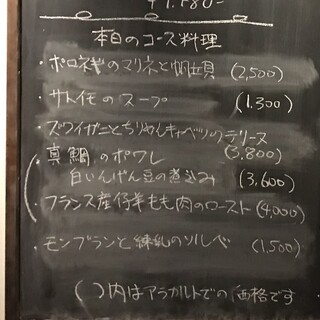 本日のコース料理
・ポロネギのマリネと帆立貝 (2,500)
・サトイモのスープ (1,300)
・ズワイガニとちりめんキャベツのテリーヌ
(3,800)
・真鯛のポワレ
白いんげん豆の煮込み (3,600)
・フランス産仔羊もも肉のロースト (4,000)
・モンブランと練乳のソルベ (1,500)
( )内はアラカルトでの価格です